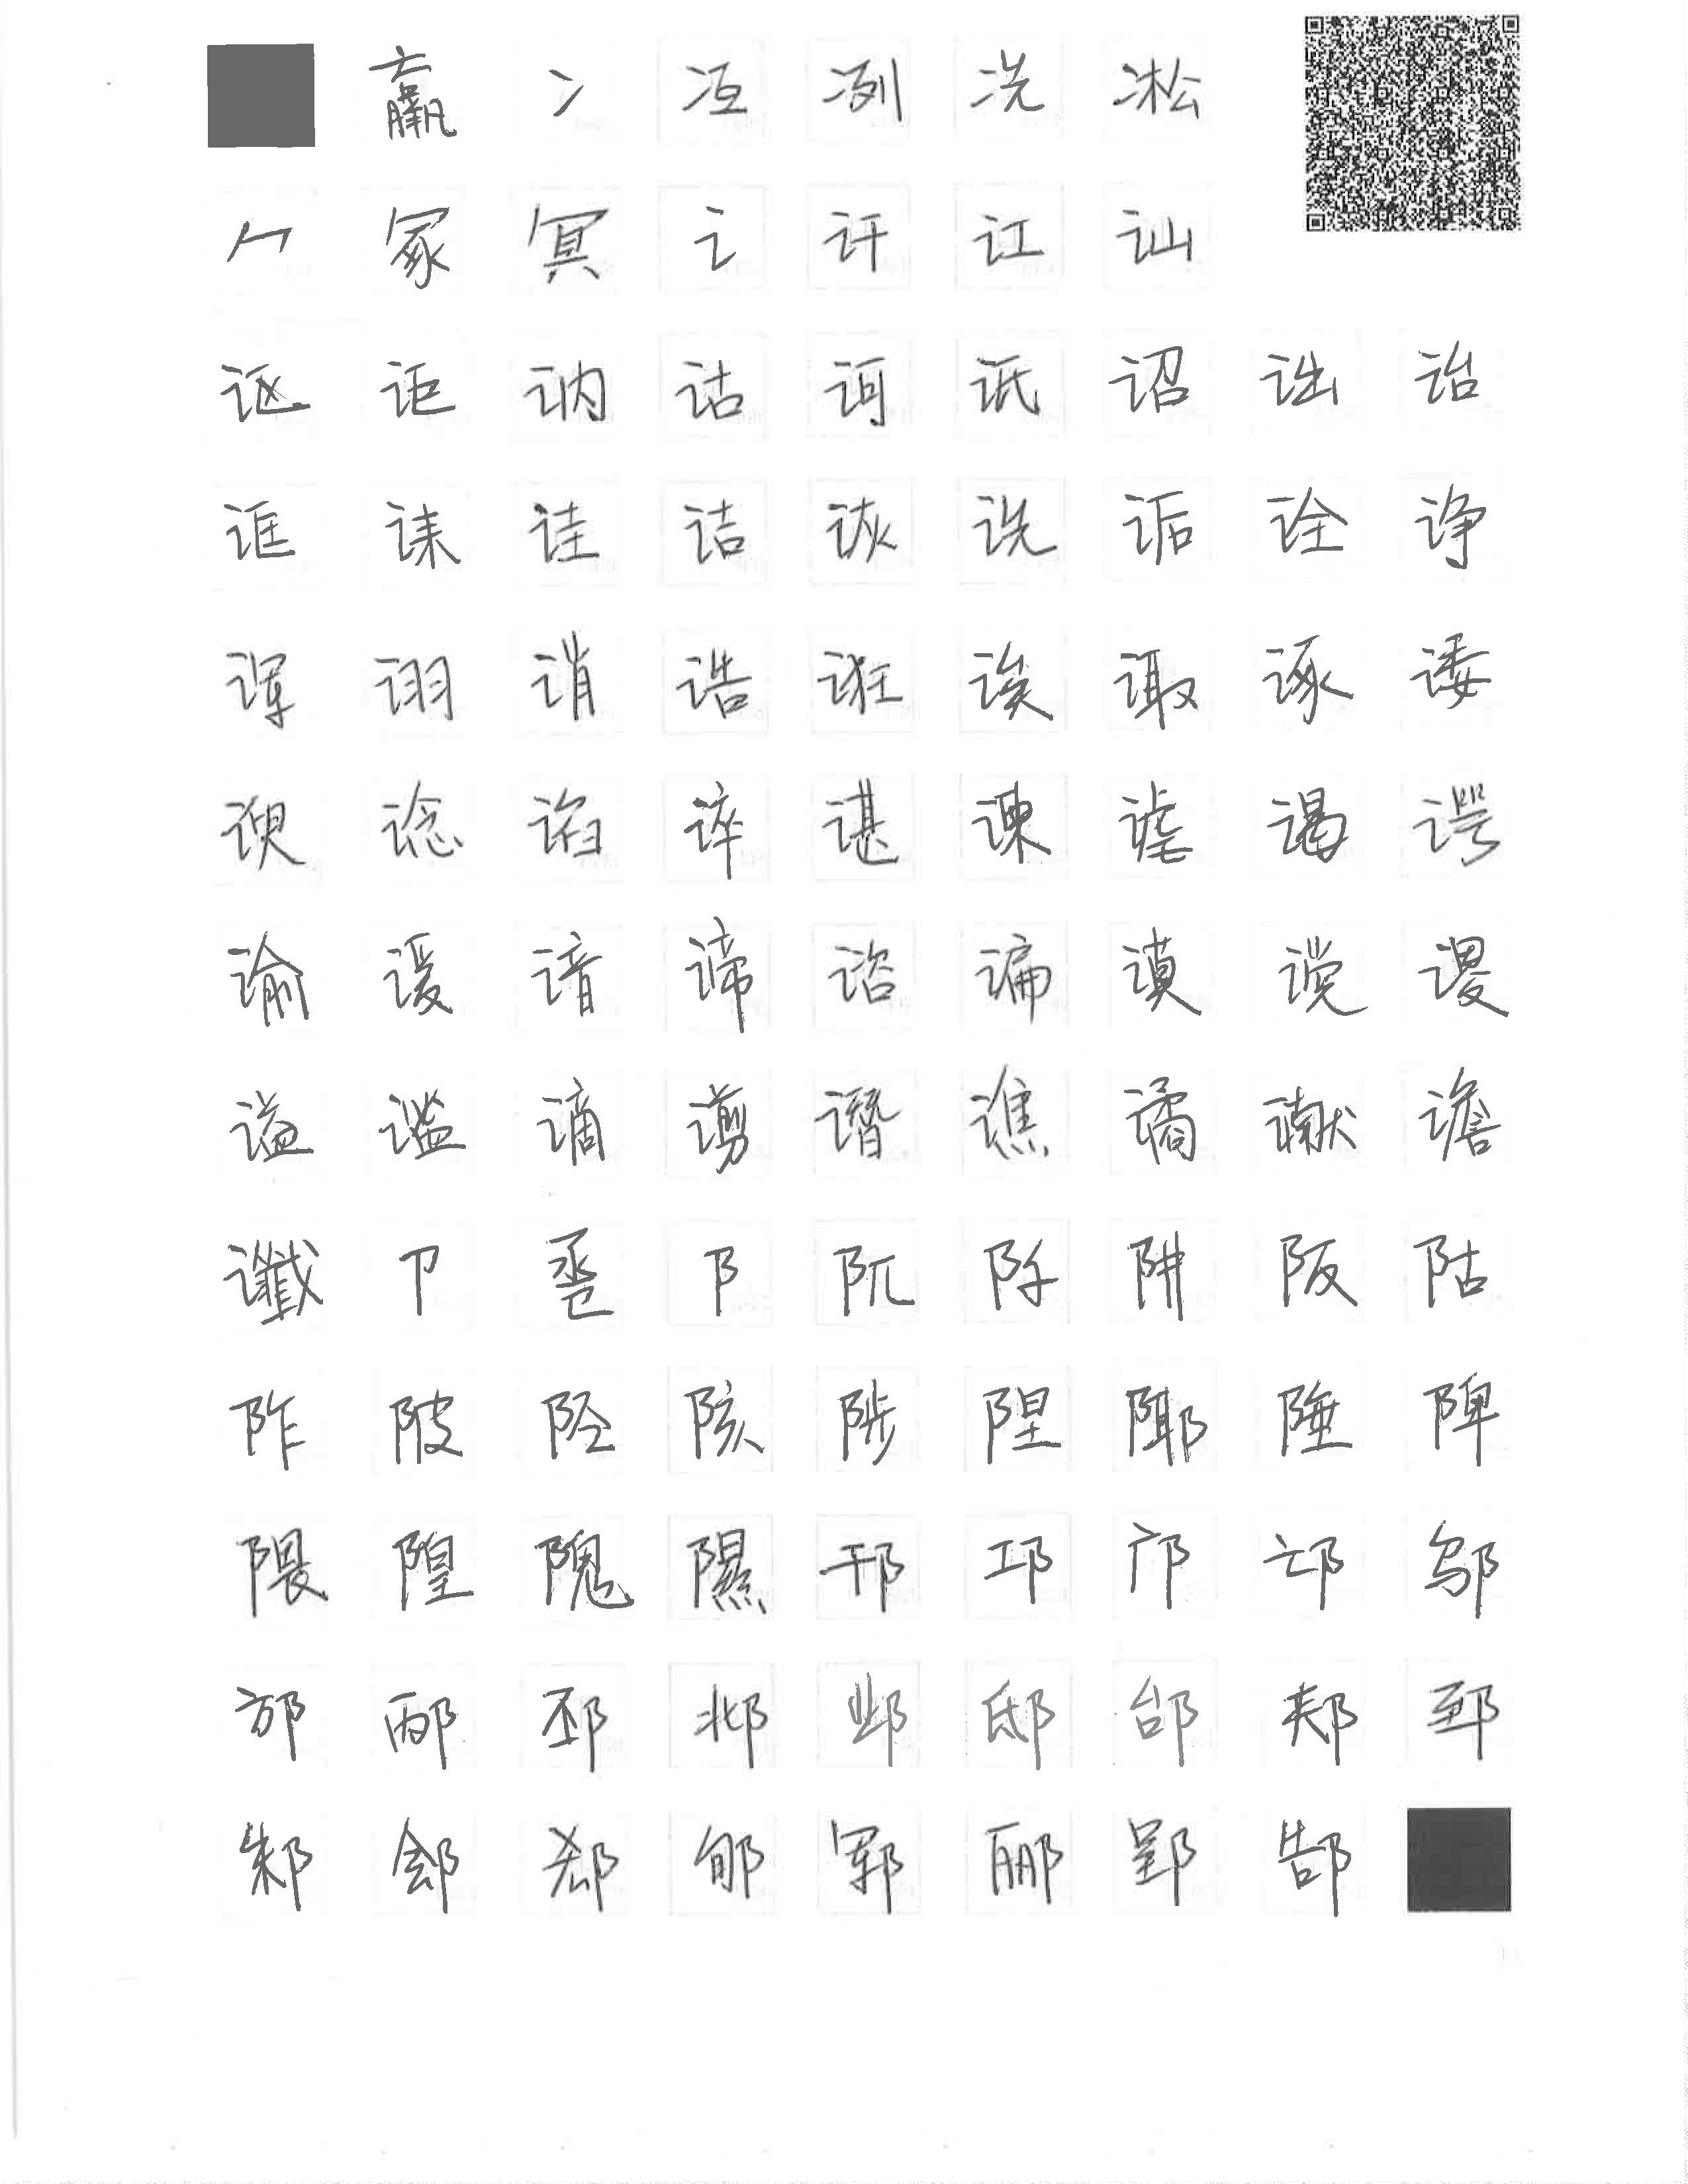 羸冫冱冽冼凇
冖冢冥讠讦讧讪
讴讵讷诂诃诋诏诎诒
诓诔诖诘诙诜诟诠诤
诨诩诮诰诳诶诹诼诿
谀谂谄谇谌谏谑谒谔
谕谖谙谛谘谝谟谠谡
谥谧谪谫谮谯谲谳谵
谶卩卺阝阢阡阱阪阽
阼陂陉陔陟陧陬陲陴
隈隍隗隰邗邛邝邙邬
邡邴邳邶邺邸邰郏郅
邾郐郄郇郓郦郢郜